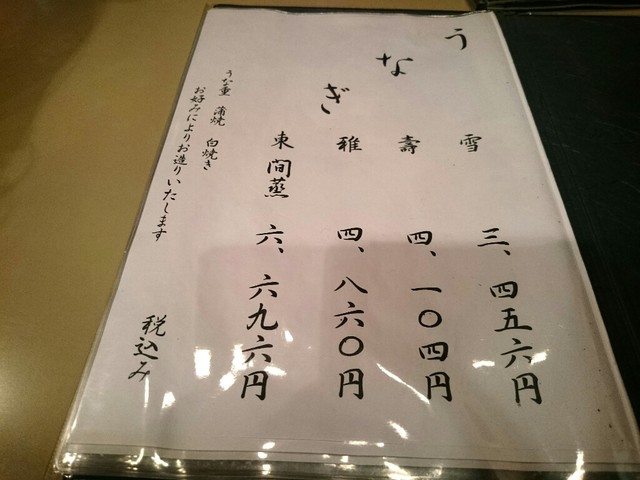 うなぎ
雪 三、四五六円
壽 四、一〇四円
雅 四、八六〇円
東間蒸 六、六九六円
うな重 蒲焼 白焼き
お好みによりお造りいたします
税込み